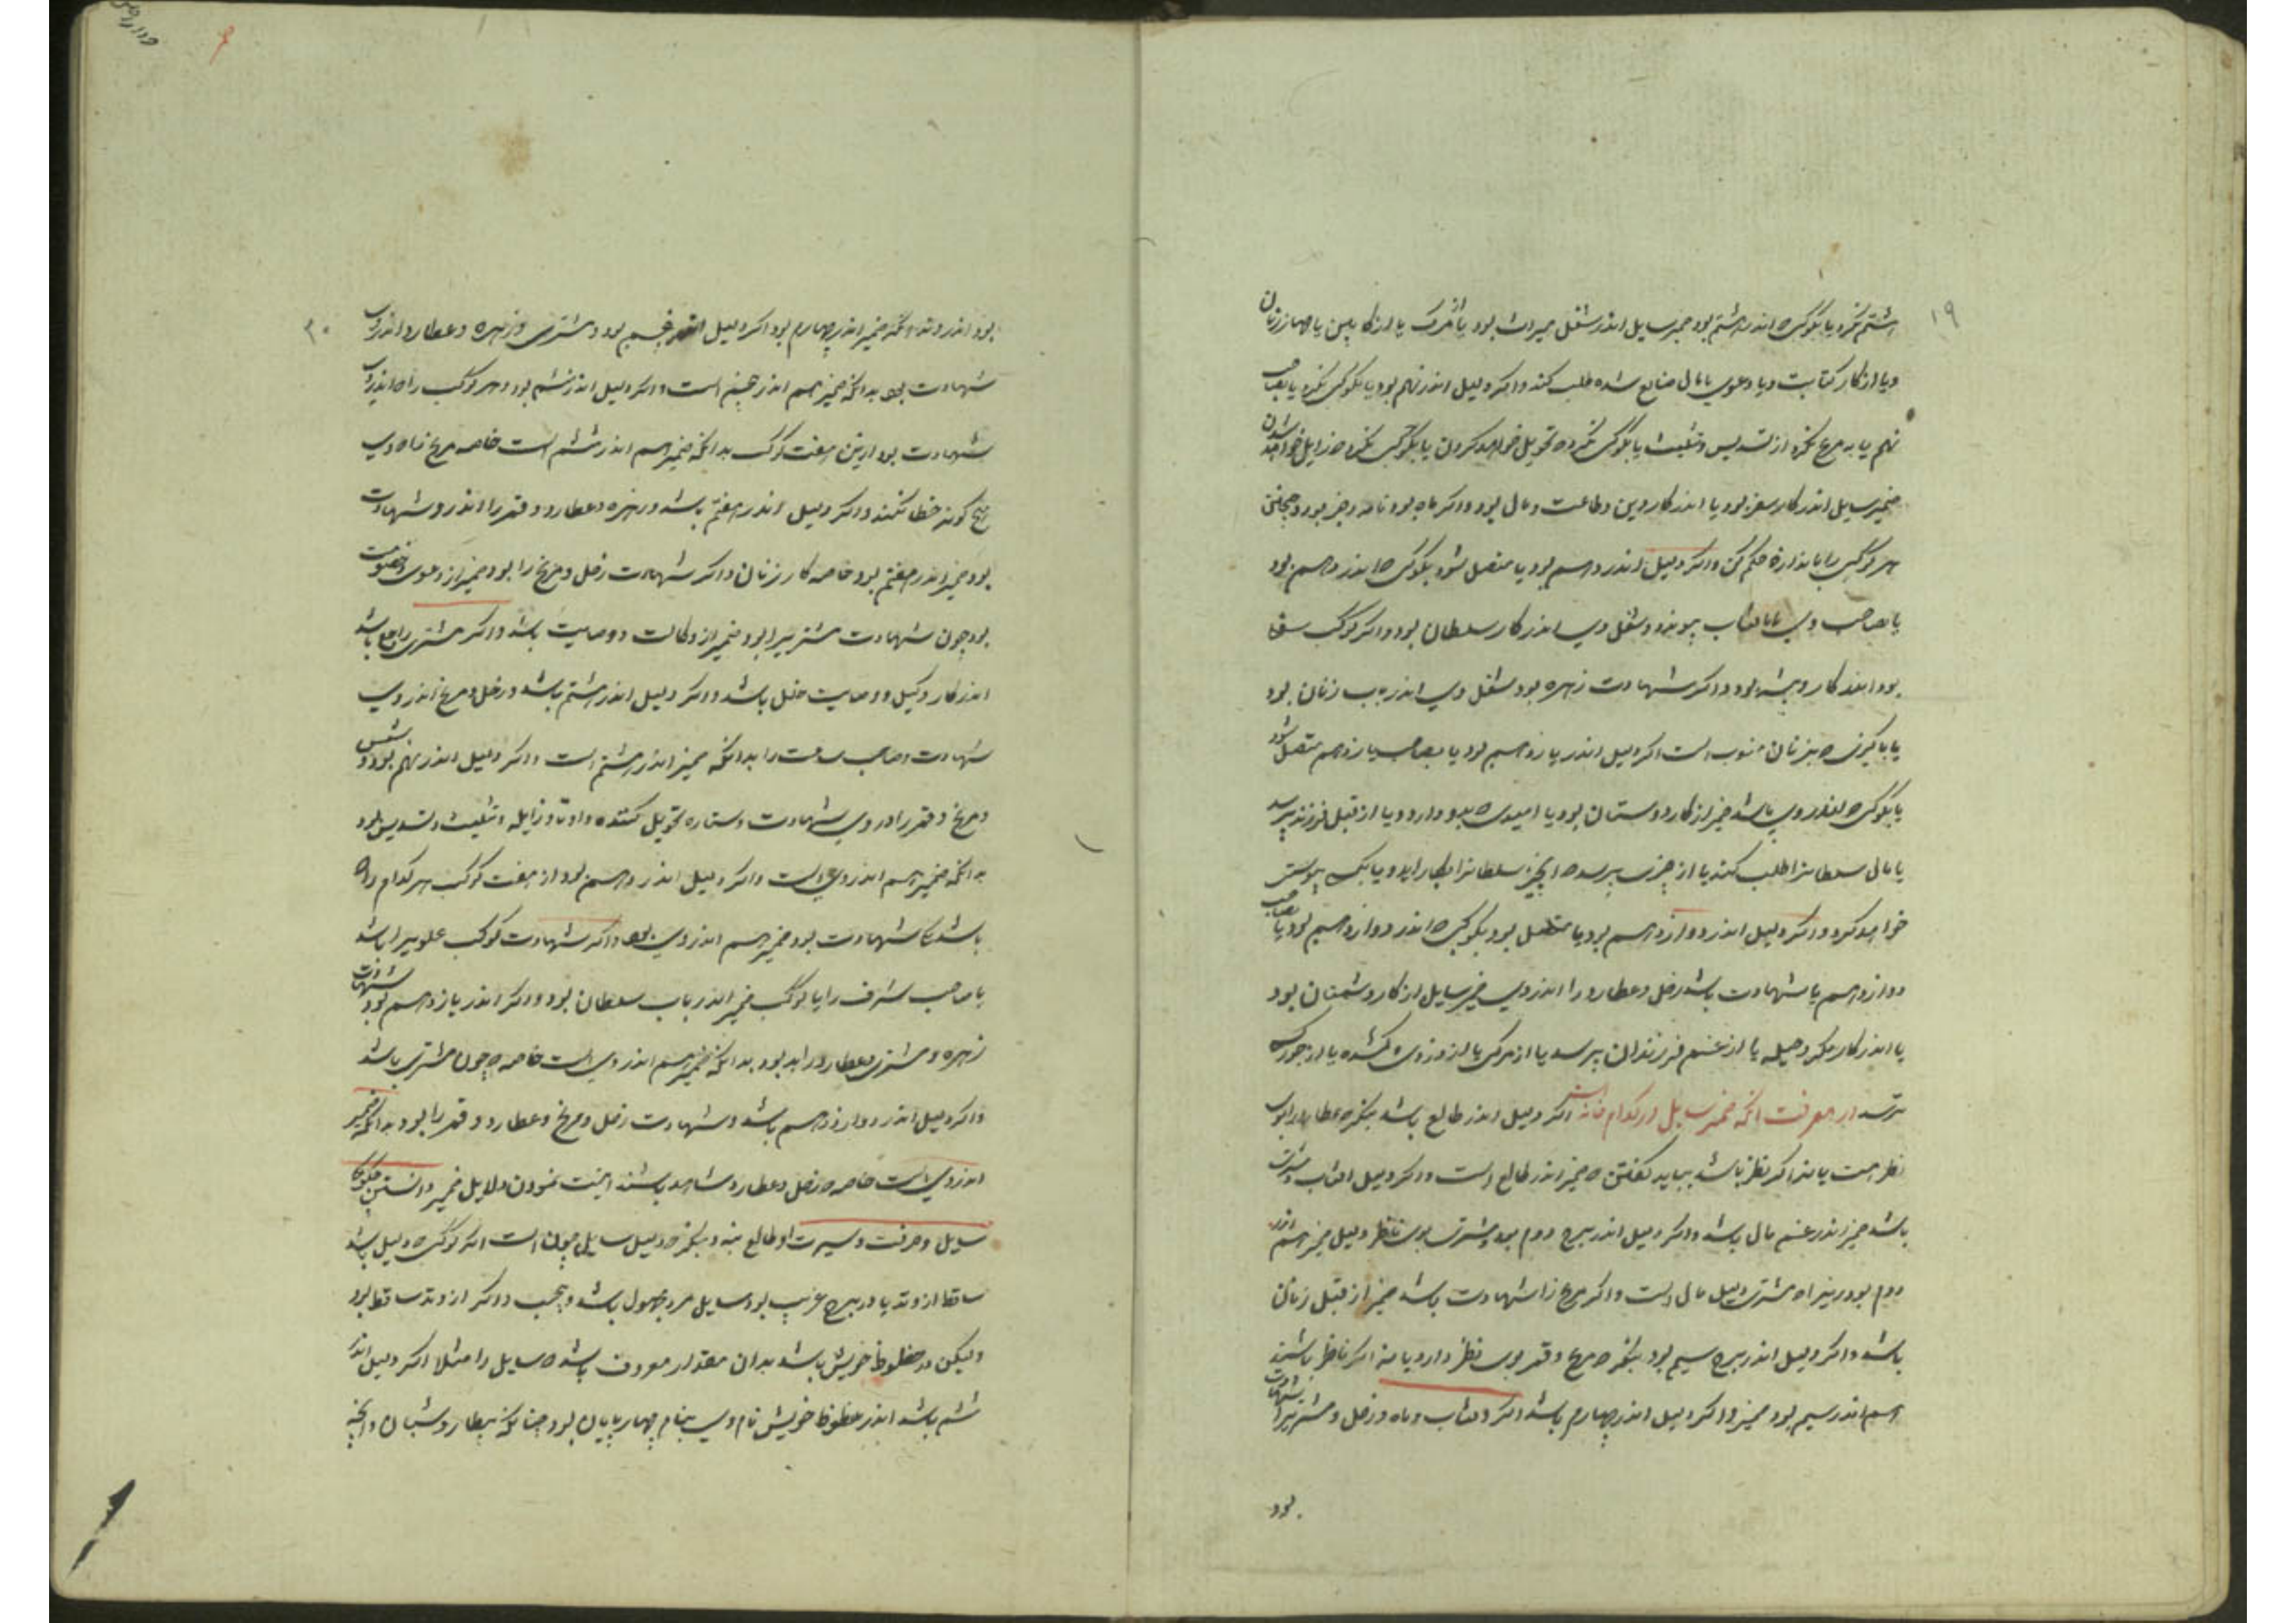 ۱۹
هشتم نگرد یا بکوکبی که اندر هشتم بود ضمیر سایل اندر شغل میراث بود یا از مرگ یا از کابین یا جهاز زنان
و یا از کار کتابت و یا دعوی یا مال ضایع شده طلب کند و اگر دلیل اندر نهم بود یا بکوکبی نگرد یا بصاحب
نهم یا به مریخ نگرد از تسدیس و تثلیث یا بکوکبی نگرد که تحویل خواهد کردن یا بکوکبی نگرد که زایل خواهد شدن
ضمیر سایل اندر کار سفر بود یا اندر کار دین و طاعت و مال بود و اگر ماه بود نامه و خبر بود و همچنین
هر کوکبی را باندازه حکم کن و اگر دلیل اندر دهم بود یا متصل شود بکوکبی که اندر دهم بود
یا بصاحب وی یا بافتاب پیوندد شغل وی اندر کار سلطان بود و اگر کوکب سقا
بود اندر کار و پیشه بود و اگر شهادت زهره بود شغل وی اندر باب زنان بود
یا با کسی که بزنان منسوب است اگر دلیل اندر یازدهم بود یا بصاحب یازدهم متصل شود
یا بکوکبی که اندر وی باشد ضمیر از کار دوستان بود یا امیدی که بدو دارد و یا از قبل فرزند پرسد
یا مالی سلطانرا طلب کند یا از چیزی پرسد که آنچیز سلطانرا بکار آید و یا بک پیوستن
خواهد کرد و اگر دلیل اندر دوازدهم بود یا متصل بود بکوکبی که اندر دوازدهم بود یا بصاحب
دوازدهم یا شهادت باشد زحل و عطارد را اندر وی ضمیر سایل از کار دشمنان بود
یا اندر کار مکر و حیله یا از غم فرزندان پرسد یا از مرگ یا از دزدی کشنده یا از جور که
ترسد در معرفت انکه ضمیر سایل در کدام خانه است اگر دلیل اندر طالع باشد بنگر که عطارد را بوی
نظر هست یا نه اگر نظر باشد بباید گفتن که ضمیر اندر طالع است و اگر دلیل افتاب و مشتری
باشد ضمیر اندر غم مال باشد و اگر دلیل اندر برج دوم بود و مشتری بوی ناظر دلیل ضمیر هم اندر
دوم بود زیراکه مشتری دلیل مال است و اگر مریخ را شهادت باشد ضمیر از قبل زنان
باشد و اگر دلیل اندر برج سیم بود بنگر که مریخ و قمر بوی نظر دارد یا نه اگر ناظر باشند
هم اندر سیم بود ضمیر و اگر دلیل اندر چهارم باشد اگر افتاب و ماه و زحل و مشتریرا شهادت
بود
۲۰
بود اندر وتد انکه ضمیر اندر چهارم بود اگر دلیل اندر پنجم بود و مشتری و زهره و عطارد اندر وی
شهادت بود بدانکه ضمیر هم اندر پنجم است و اگر دلیل اندر ششم بود و هر کوکب را که اندر وی
شهادت بود ازین هفت کوکب بدانکه ضمیر هم اندر ششم است خاصه مریخ که وی
هیچ گونه خطا نکند و اگر دلیل اندر هفتم باشد و زهره و عطارد و قمر را اندر و شهادت
بود ضمیر اندر هفتم بود خاصه کار زنان و اگر شهادت زحل و مریخ را بود ضمیر از دعوی و خصومت
بود چون شهادت مشتریرا بود ضمیر از وکالت و وصایت باشد و اگر مشتری راجع باشد
اندر کار وکیل و وصایت خلل باشد و اگر دلیل اندر هشتم باشد و زحل و مریخ اندر وی
شهادت و صاحب ساعت را بدانکه ضمیر اندر هشتم است و اگر دلیل اندر نهم بود و شمس
و مریخ و قمر را در وی شهادت و ستاره تحویل کننده و اوتاد زایله و تثلیث و تسدیس بود
بدانکه ضمیر هم اندر وی است و اگر دلیل اندر دهم بود از هفت کوکب هر کدام را که
باشد شهادت بود ضمیر هم اندر وی بود و اگر شهادت کوکب علویرا باشد
یا صاحب شرف را یا کوکب ضمیر اندر باب سلطان بود و اگر اندر یازدهم بود شهادت
زهره و مشتری و عطارد را بود بدانکه ضمیر هم اندر وی است خاصه که چون مشتری باشد
و اگر دلیل اندر دوازدهم باشد و شهادت زحل و مریخ و عطارد و قمر را بود بدانکه ضمیر
اندر وی است خاصه که زحل و عطارد شاهد باشند اینست نمودن دلایل ضمیر دانستن چگونگی
سایل و حرفت و سیرت او طالع بنه و بنگر که دلیل سایل چون است اگر کوکبی که دلیل باشد
ساقط از وتد یا در برج غریب بود سایل مرد مجهول باشد و بی حسب و اگر از وتد ساقط بود
ولیکن در حظوظ خویش باشد بدان مقدار معروف باشد که سایل را مثلا اگر دلیل اندر
ششم باشد اندر حظوظ خویش نام وی بنام چهارپایان بود چنانکه بیطار و شبان و انچه